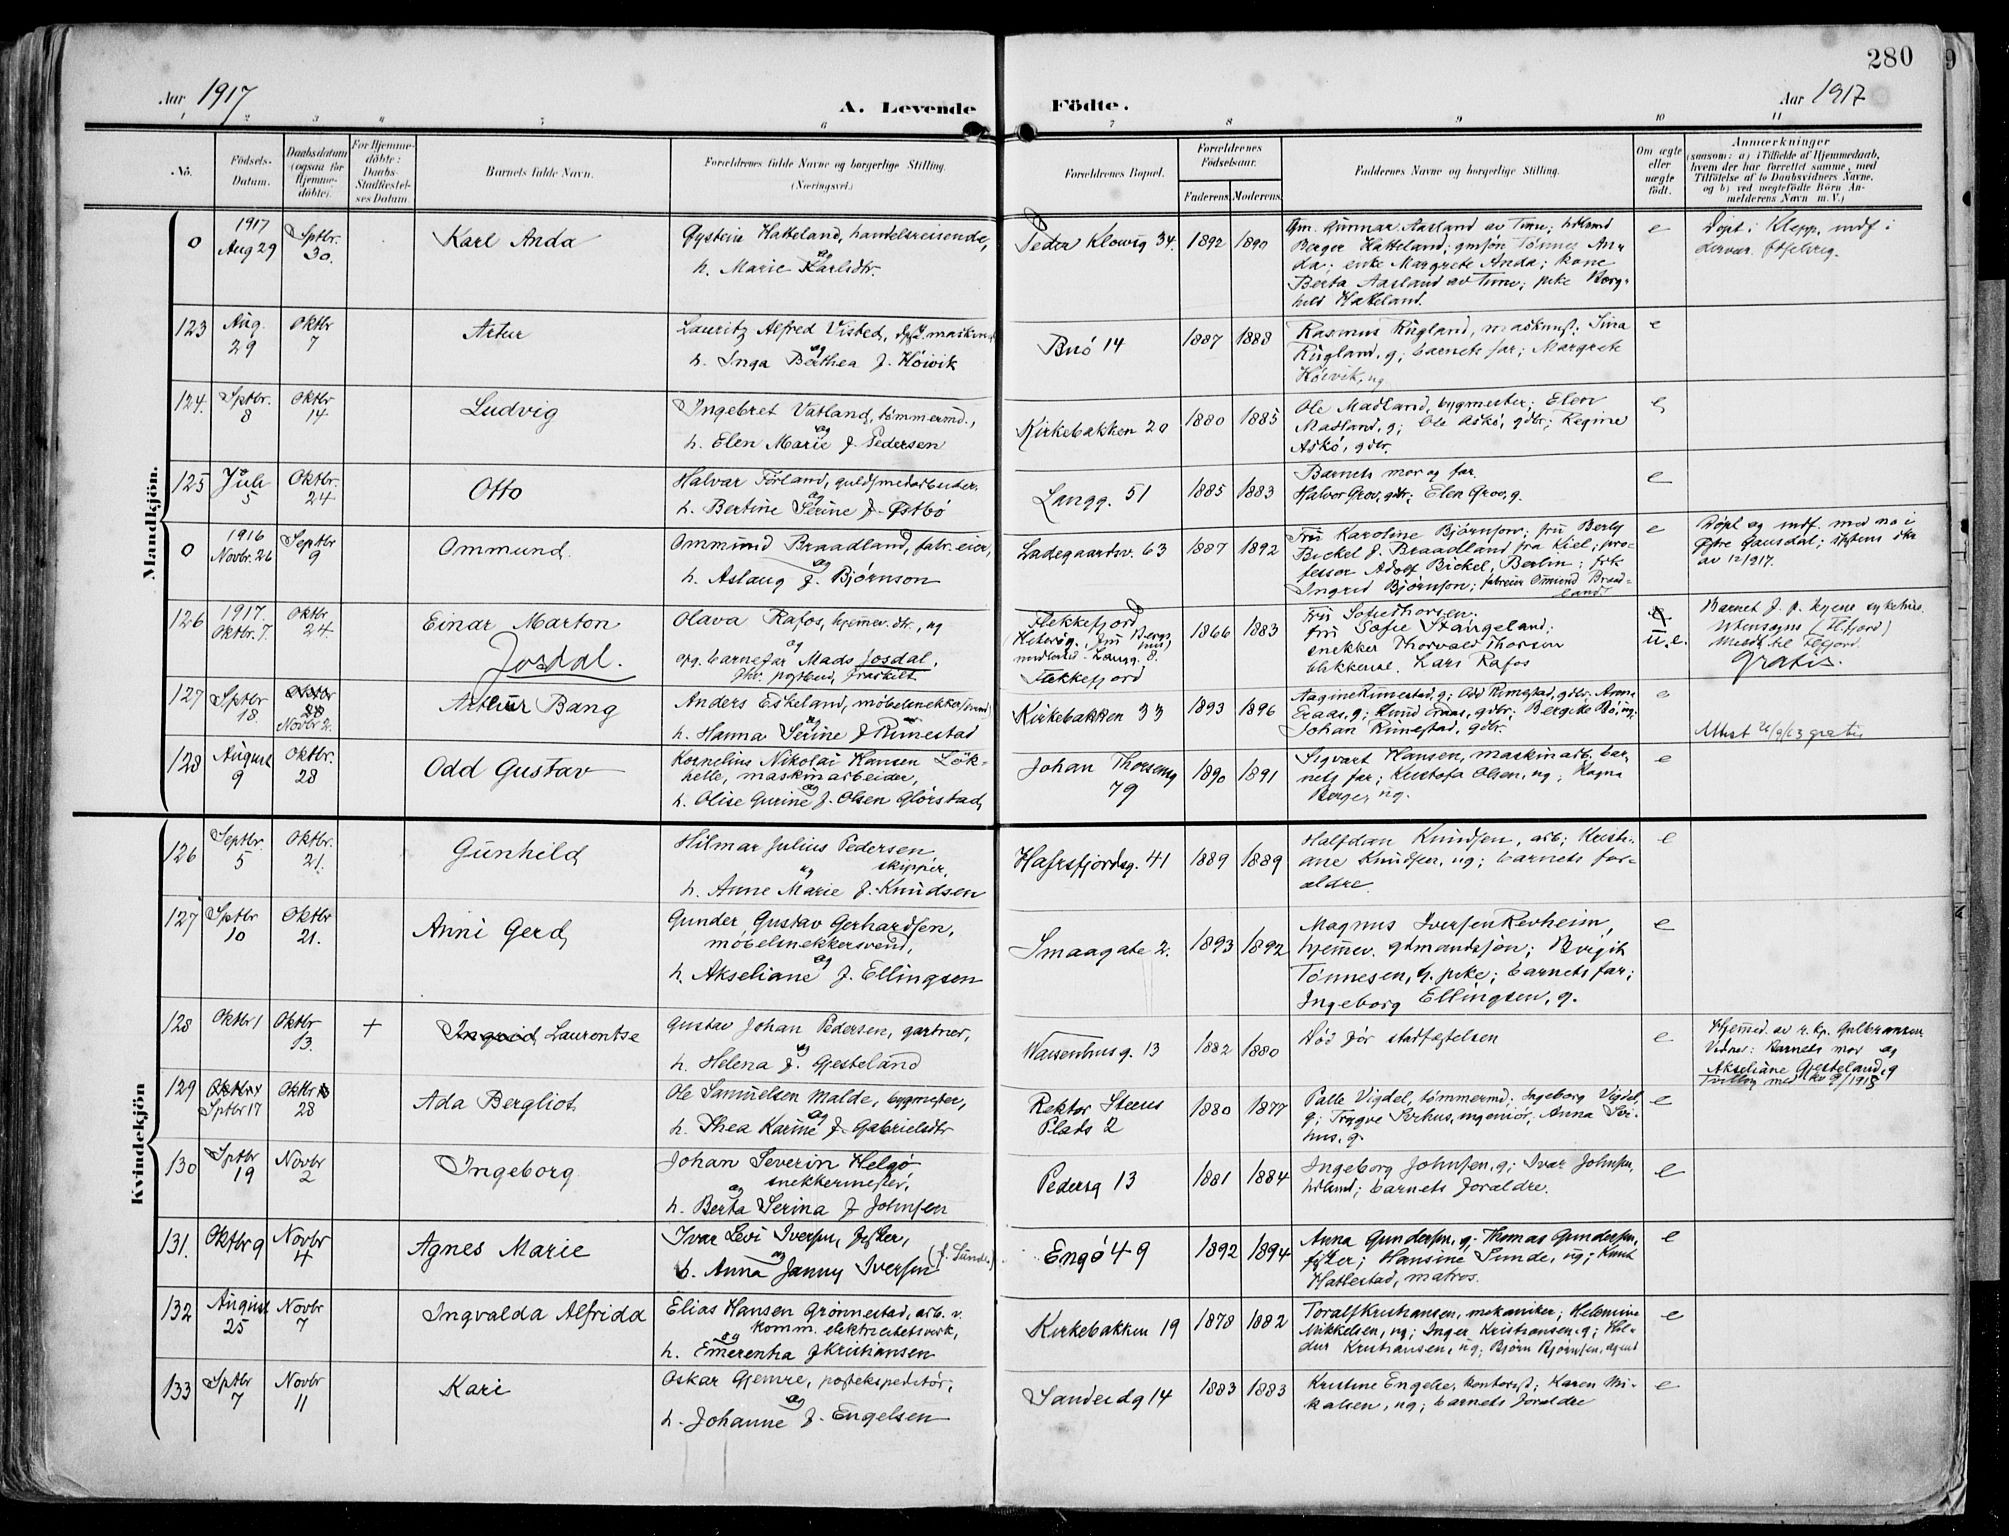 280
Aar 1917
A. Levende Födte.
Aar 1917
1 2 3 4 5 6 7 8 9 10 11
No.
Födsels-
Datum.
Daabsdatum
(ogsaa for
Hjemme-
döbte).
For Hjemme-
döbte:
Daabs-
Stadfæstel-
ses Datum.
Barnets fulde Navn.
Forældrenes fulde Navne og borgerlige Stilling.
(Næringsvei.)
Forældrenes Bopæl.
Forældrenes
Födselsaar.
Faderens. Moderens.
Faddernes Navne og borgerlige Stilling.
Om ægte
eller
uægte
födt.
Anmerkninger
(saasom: a) i Tilfælde af Hjemmedaab,
hvem der har forrettet samme, med
Tilföielse af to Daabsvidners Navne,
og b) ved uægtefödte Börn An-
melderens Navn m. V.)
Mandkjön.
0
1917
Aug 29
Sptbr.
30.
Karl Anda
Øystein Hatteland, handelsreisende,
og
h. Marie Karlsdtr.
Peder Klowsg 34.
1892
1890
Gm. Gunnar Aasland av Time;
Berger Hatteland; gmsøn Tønnes An-
da; enke Margrete Anda; kone
Berta Aasland av Time; pike Borg-
hild Hatteland.
e
Døpt i Klepp, indf i
dervær.
123
Aug.
29
Oktbr
7
Artur
Lauritz Alfred Visted,
og
h. Inga Berthea f. Høivik
Buö 14
1887
1888
Rasmus Rügland, maskinist; Sina
Rügland, g; barnets far; Margrete
Høivik, ug.
e
124.
Sptbr.
8
Oktbr
14
Ludvig
Ingebret Vatland, tömmermd.,
og
h. Elen Marie f. Pedersen
Kirkebakken 20
1880
1885
Ole Madland, bygmester; Elen
Madland, g; Ole Askö, gdbr; Regine
Askö, gdbr.
e
125
Juli
5
Oktbr.
24
Otto
Halvar Förland, guldsmedarbeider.
og
h. Bertine Serine f. Østbö
Langg. 51
1885
1883
Barnets mor og far.
Halvor Grov, gdbr; Elen Grov, g.
e
0
1916
Novbr. 26
Septbr
9
Ommund.
Ommund Braadland, fabr. eier,
og
h. Aslaug f. Bjørnson
Ladegaardsv. 63
1887
1892
Fru Karoline Bjørnson; fru Berly
Bickel f. Braadland fra Kiel; pro-
fessor Adolf Bickel, Berlin; frk
Ingrid Bjørnson; fabreier Omund Braad-
land
e
Døpt og indf. med no i
Østre Gausdal;
av 12/1917.
126
1917.
Oktbr. 7.
Oktbr
24
Einar Marton
Josdal.
Olava Rafos, hjemmev. dtr., ug
og
opg. barnefar Mads Josdal,
fhv. postbud, fraskilt
Flekkefjord
Langg. 8.
Flekkefjord
1866
1883
Fru Sofie Thorsen;
fru Sofie Stangeland;
snekker Thorvald Thorsen
blikkensl. Lars Rafos
u. e.
Barnet f. p. hjene sykehus.
Gratis.
127
Sptbr
18
Novbr 2.
Arthur Bang
Anders Eskeland, møbelsnekker
og
h. Hanna Serine f Rimestad
Kirkebakken 33
1893
1896
Aagine Rimestad, g; Odd Rimestad, gdbr. Anna
Eraas, g; Knud Eraas, gdbr; Bergite Bö, ug;
Johan Rimestad, gdbr.
e
Attest 21/9/63 gratis
128
August
9
Oktbr.
28
Odd Gustav
Kornelius Nikolai Hansen Lök-
helle, maskinarbeider,
og
h. Olise Gurine f. Olsen Glörstad,
Johan Thorseng
79
1890
1891
Sigvart Hansen, maskinarb, bar-
nets far; Kristofa Olsen, ug; Ragna
Berge, ug.
e
Kvindekjön
126
Septbr.
5
Oktbr.
21.
Gunhild
Hilmar Julius Pedersen
skipper,
og
h. Anne Marie f. Knudsen
Hafrsfjordsg. 41
1889
1889
Halfdan Knudsen, arb; Kristi-
ane Knudsen, ug; barnets for-
ældre.
e
127
Sptbr
10
Oktbr
21.
Anni Gerd
Gunder Gustav Gerhardsen,
møbelsnekkersvend,
og
h. Akseliane f. Ellingsen
Smaagate 2.
1893
1892
Magnus Iversen Revheim,
hjemmev. gdmandssøn; Bergit
Tønnesen, h. pike; barnets far;
Ingeborg Ellingsen, g.
e
128
Oktbr 1
Oktbr
13.
+
Ingrid Laurentse
Gustav Johan Pedersen, gartner,
og
h. Helena f. Gjesteland
Waisenhusg. 13
1882
1880
Død før stadfæstelsen
e
Hjemmed. av r. kp. Gulbransen
Vidner: Barnets mor og
Akseliane Gjesteland, g
Tvilling med
129
Oktbr 4
Sptbr 17
Oktbr
28
Ada Bergliot
Ole Samuelsen Malde, bygmester,
og
h. Thea Karine f. Gabrielsdtr
Rektor Steens
Plads 2
1880
1877
Palle Vigdel, tømmermd; Ingeborg Vigdel
g; Trygve Sirhus, ingeniör; Anna Sir-
hus, g.
e
130
Sptbr
19
Novbr
2
Ingeborg
Johan Severin Helgö
snekkermester,
og
h. Berta Serina f Johnsen
Pedersg 13
1881
1884
Ingeborg Johnsen, g; Ivar Johnsen,
barnets foraldre.
e
131.
Oktbr 9
Novbr
4
Agnes Marie
Ivar Levi Iversen, fisker,
og
h. Anna Janny Iversen (f. Sunde)
Engö 49
1892
1894
Anna Gundersen, g; Thomas Gundersen,
fisker; Hansine Sunde, ug; Knut
Hattestad, matros.
e
132
August
25
Novbr
7
Ingvalda Alfrida
Elias Hansen Grønnestad, arb. v.
komm. elektricitetsverk,
og
h. Emerentsa f Kristiansen
Kirkebakken 19
1878
1882
Toralf Kristiansen, mekaniker; Helemine
Mikkelsen, ug; Inger Kristiansen, g; Hil-
dur Kristiansen, ug; Bjørn Bjørnsen, agent
e
133
Sptbr
7
Novbr
11
Kari
Oskar Gjemre, postekspeditör,
og
h. Johanne f. Engelsen
Sandeidg 14
1883
1883
Kristine Engelse, kontorist; Karen Mi-
kalsen, ug; barnets foraldre
e